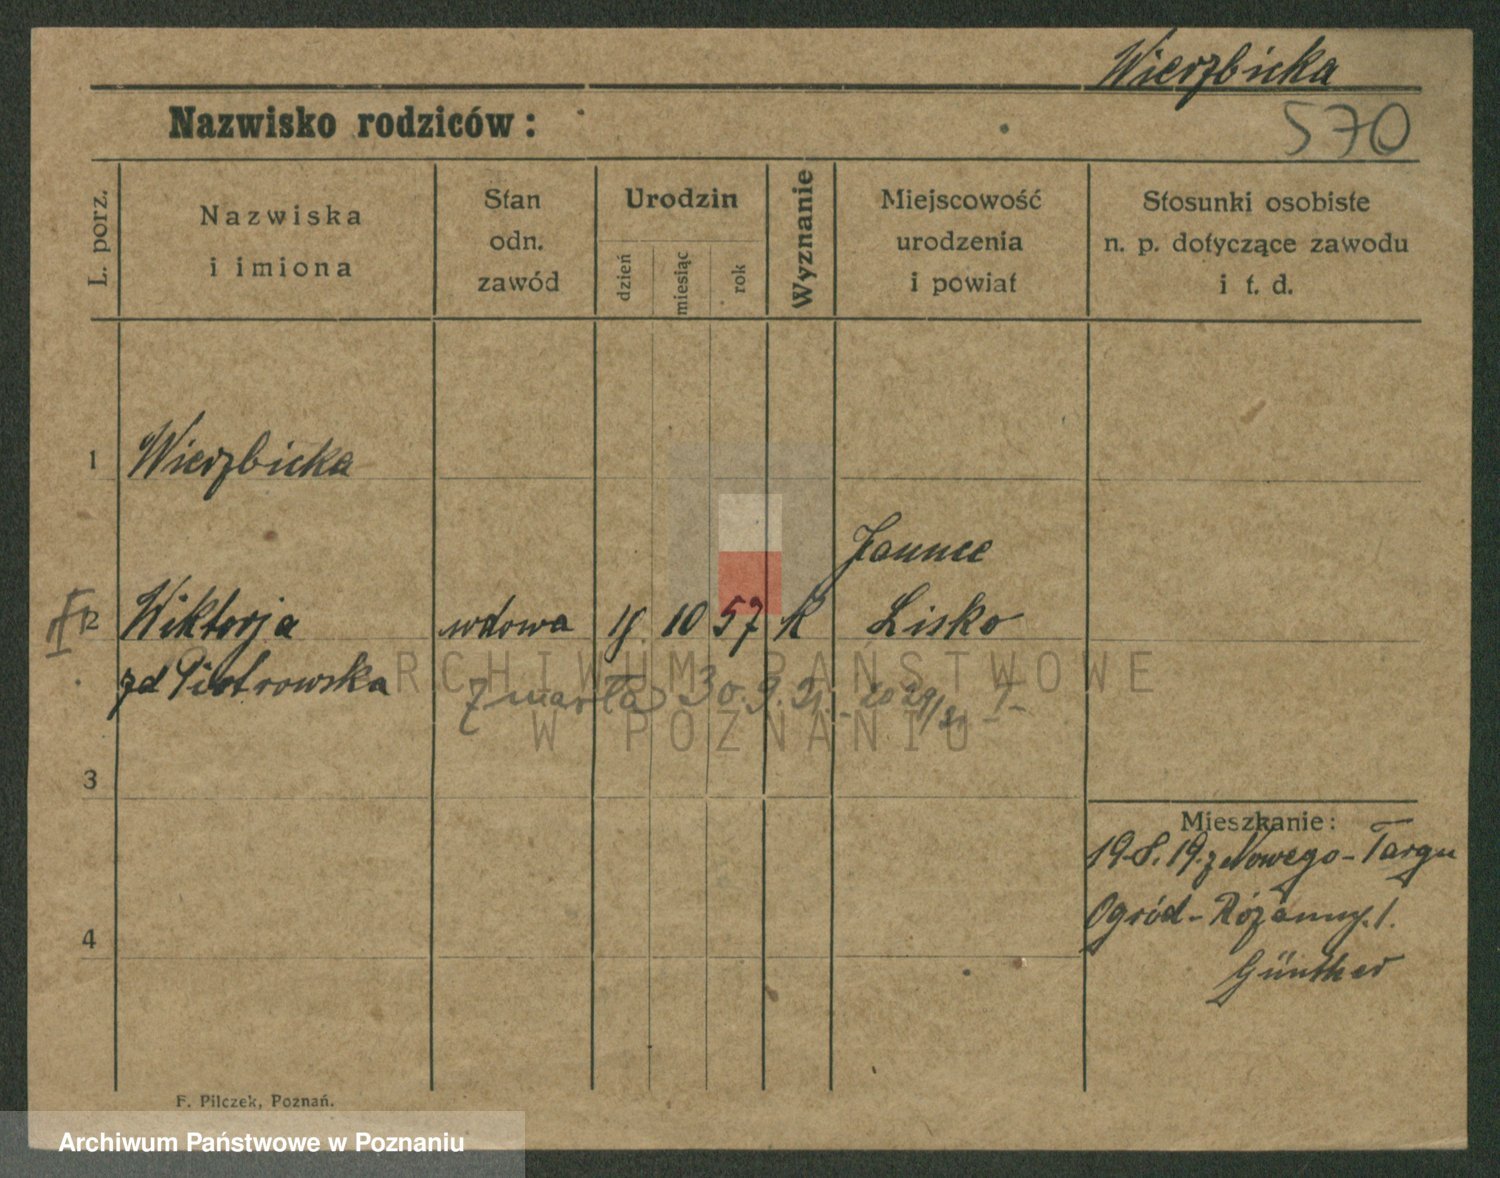 Wierzbicka
Nazwisko rodziców:
570
L. porz.
Nazwiska
i imiona
Stan
odn.
zawód
Urodzin
dzień
miesiąc
rok
Wyznanie
Miejscowość
urodzenia
i powiat
Stosunki osobiste
n. p. dotyczące zawodu
i t. d.
1 Wierzbicka
2 Wiktorja wdowa 10 57 k Lisko
zd Piotrowska
zmarła 30.9.21.
3
4
Mieszkanie:
19.8.19. z Nowego-Targu
Ogród-Różanny. 1.
Günther
F. Pilczek, Poznań.
ARCHIWUM PAŃSTWOWE
W POZNANIU
Archiwum Państwowe w Poznaniu